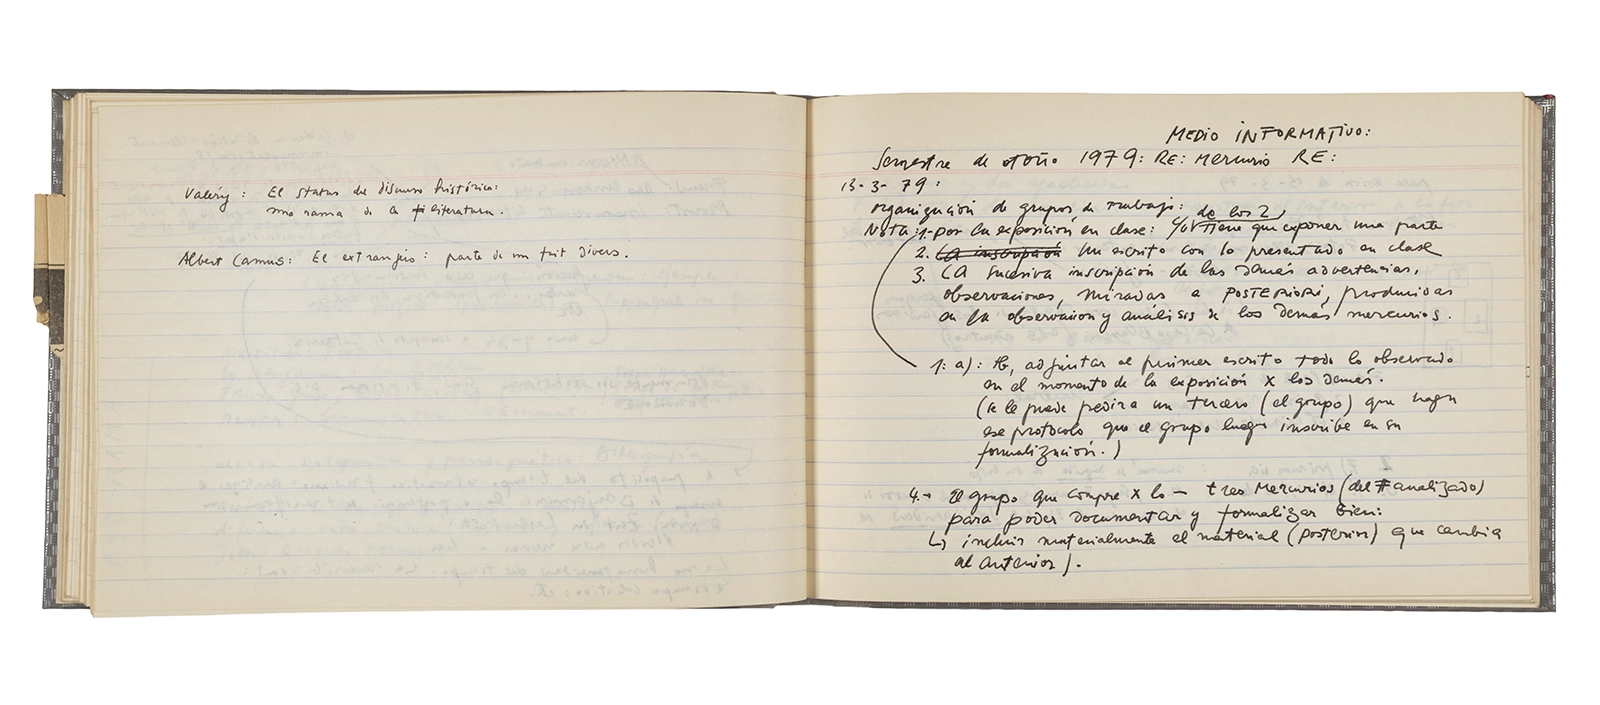 Valery: El status del discurso histórico:
una rama de la literatura.
Albert Camus: El extranjero: parte de un fait divers.
MEDIO INFORMATIVO:
Semestre de otoño 1979: RE: Mercurio RE:
13-3-79:
organización de grupos de trabajo: de los 2
Nota: 1. por la exposición en clase: c/u tiene que exponer una parte
2. La inscripción Un escrito con lo presentado en clase
3. La sucesiva inscripción de las demás advertencias,
observaciones, miradas a POSTERIORI, producidas
en la observacion y análisis de los demás mercurios.
1: a): adjuntar al primer escrito todo lo observado
en el momento de la exposición x los demás.
(se le puede pedir a un tercero (el grupo) que haga
ese protocolo que el grupo luego inscribe en su
formalización.)
4. → El grupo que compre x lo - tres Mercurios (del # analizado)
para poder documentar y formalizar bien:
↳ incluir materialmente el material (posterior) que cambia
al anterior).